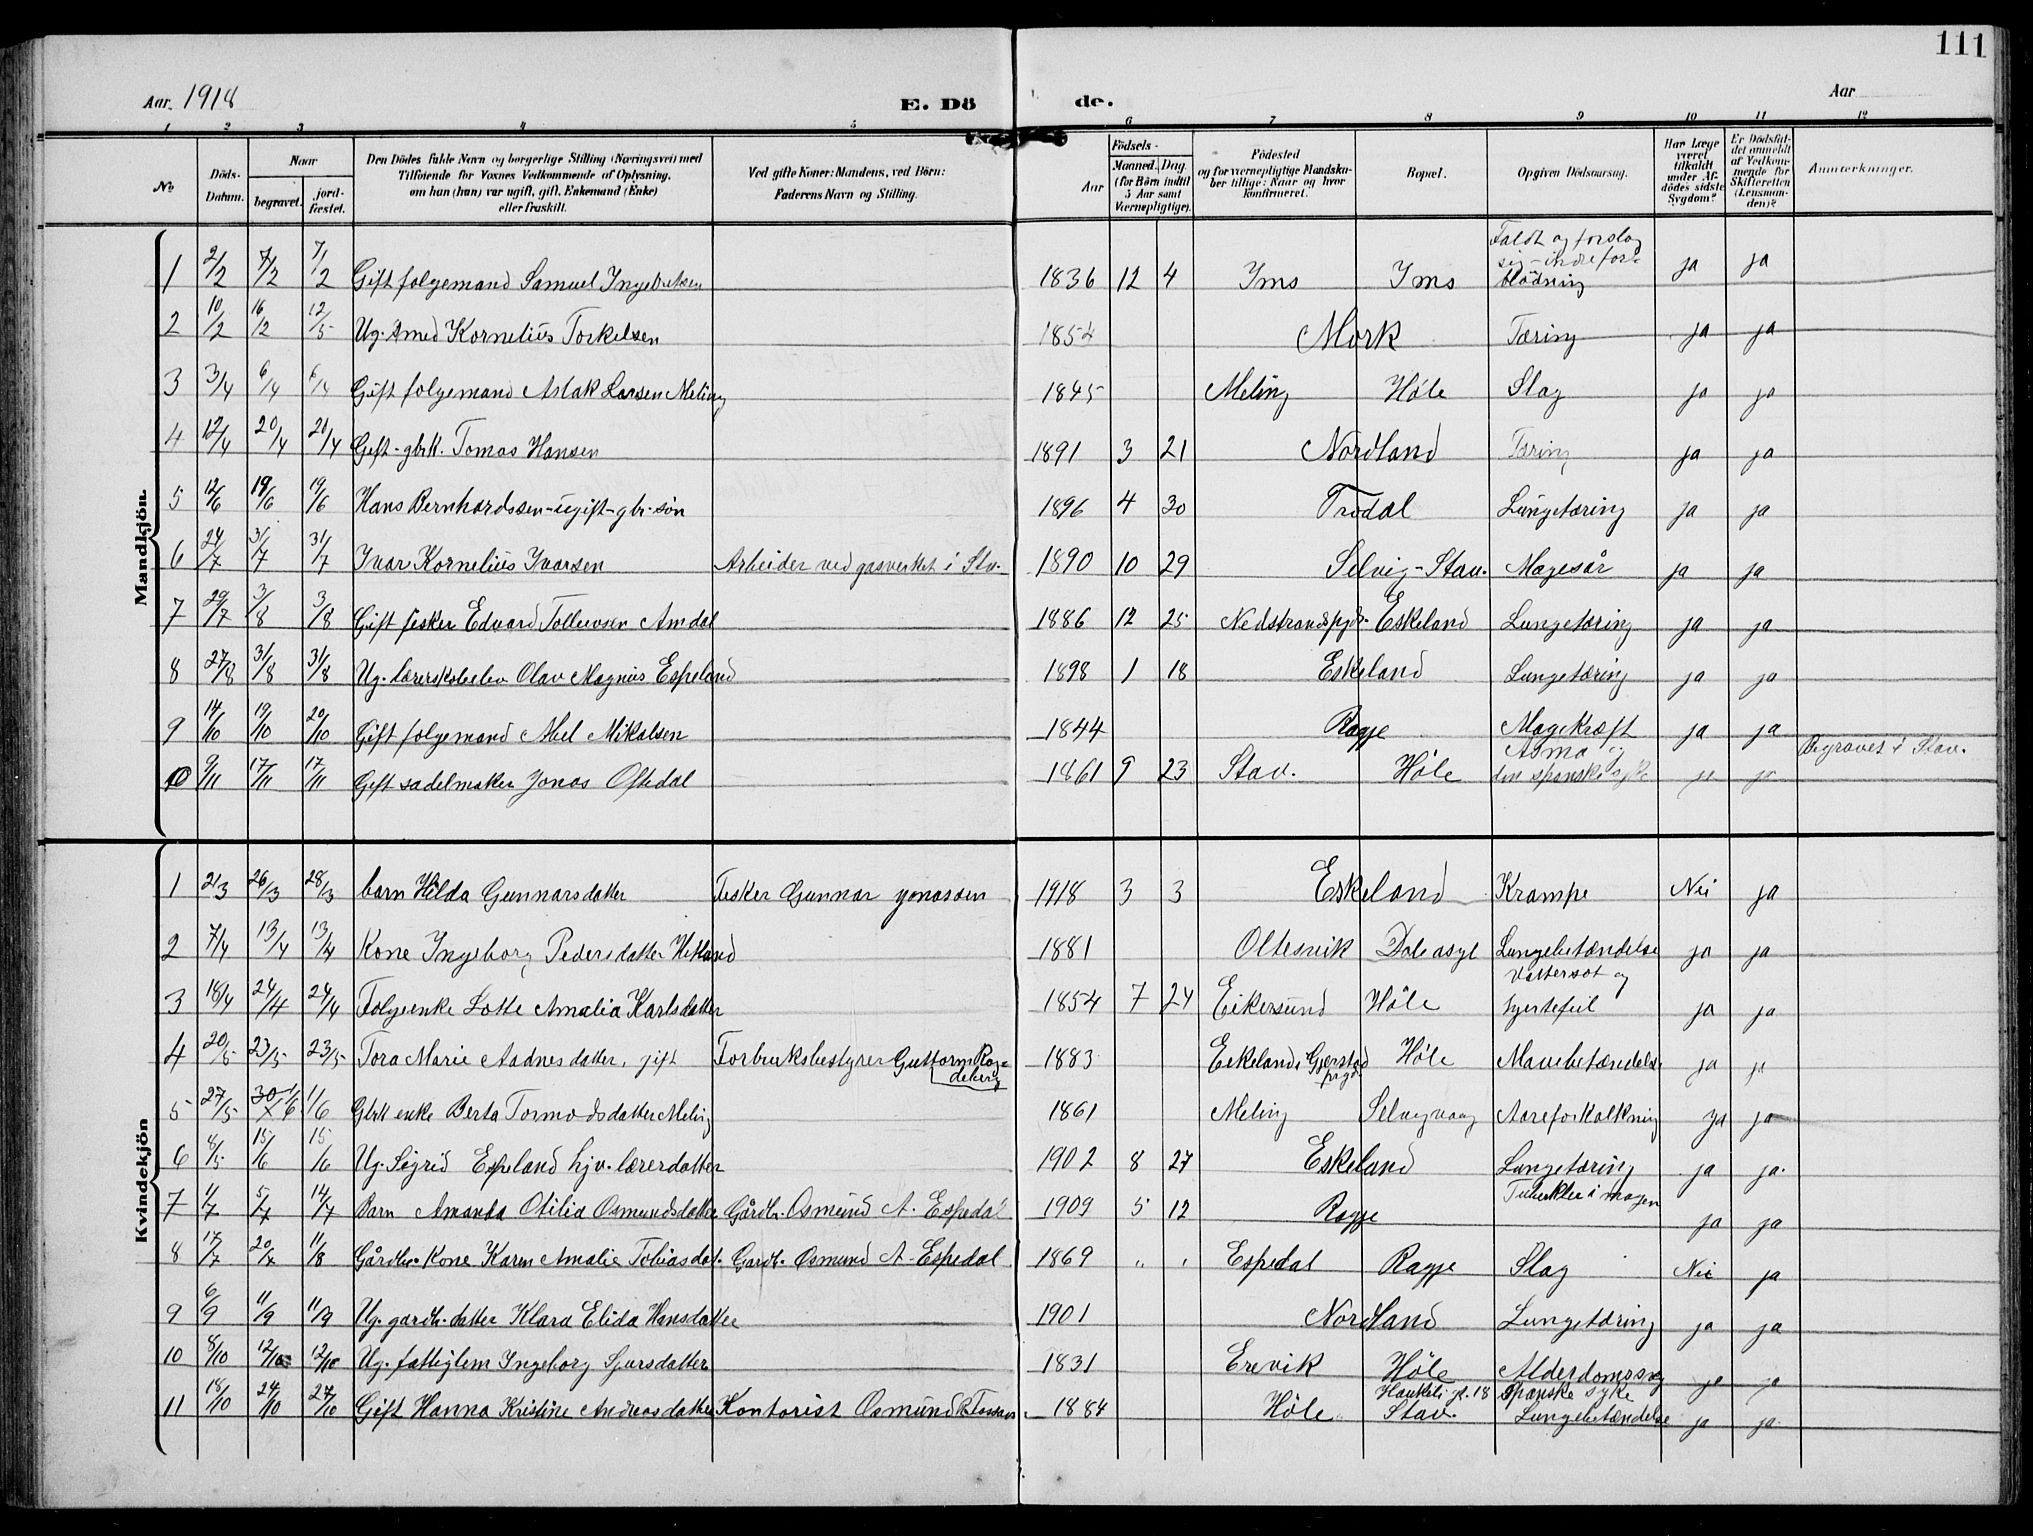 111
Aar. 1918 E. Dö de. Aar
1 2 3 4 5 6 7 8 9 10 11 12
No Döds-Datum. Naar begravet. jord-fæstet. Den Dödes fulde Navn og borgerlige Stilling (Næringsvei) med Tilföiende för Voxnes Vedkommende af Oplysning, om han (hun) var ugift, gift, Enkemand (Enke) eller fraskilt. Ved gifte Koner: Mandens, ved Börn: Faderens Navn og Stilling. Födsels- Aar Maaned. Dag. (for Börn indtil 5 Aar samt Værnepligtige). Födested og for værnepligtige Mandskaber tillige: Naar og hvor konfirmeret. Bopæl. Opgiven Dödsaarsag. Har Læge været tilkaldt under Afdödes sidste Sygdom? Er Dödsfaldet anmeldt af Vedkommende for Skifteretten (Lensmanden)? Anmærkninger.
Mandkjön.
1 2/2 7/2 7/2 Gift folgemand Samuel Ingebretsen 1836 12 4 Ims Ims Faldt og forslog sig - indre forblödning ja ja
2 10/2 16/2 12/5 Ug. Kornelius Torkelsen 1854 Mork Tæring ja ja
3 3/4 6/4 6/4 Gift folgemand Aslak Larsen Meling 1845 Meling Høle Slag ja ja
4 12/4 20/4 20/4 Gift - gbrk. Tomas Hansen 1891 3 21 Nordland Tæring ja ja
5 12/6 19/6 19/6 Hans Bernhardssen - ugift - gbr. søn 1896 4 30 Trodal Lungetæring ja ja
6 24/7 31/7 31/7 Ivar Kornelius Ivarsen Arbeider ved gasverket i Stv. 1890 10 29 Selvig - Stav. Magesår ja ja
7 29/7 3/8 3/8 Gift fisker Edvard Tollevsen Amdal 1886 12 25 Nedstrandspgd. Eskeland Lungetæring ja ja
8 27/8 31/8 31/8 Ug. lærerskoleelev Olav Magnus Espeland 1898 1 18 Eskeland Lungetæring ja ja
9 14/10 19/10 20/10 Gift folgemand Abel Mikalsen 1844 Ragje Magekræft ja ja
10 9/11 17/11 17/11 Gift sadelmaker Jonas Oftedal 1861 9 23 Stav. Høle Asma og den spanske syke ja ja Begravet i Stav.
Kvindekjön
1 21/3 26/3 28/3 barn Hilda Gunnarsdatter Fisker Gunnar Jonassen 1918 3 3 Eskeland Krampe Nei ja
2 7/4 13/4 13/4 Kone Ingeborg Pedersdatter Hetland 1881 Oltesvik Dale asyl Lungebetændelse ja ja
3 18/4 24/4 24/4 Folgeenke Lotte Amalia Karlsdatter 1854 7 24 Eikersund Høle Vattersot og hjertefeil ja ja
4 20/5 23/5 23/5 Tora Marie Aadnesdatter, gift Forbruksbestyrer Guttorm Ragdeberg 1883 Eikeland i Gjerstad prgd. Høle Mavebetændelse ja ja
5 27/5 30/5 1/6 1/6 Gbrk enke Berta Tormodsdatter Meling 1861 Meling Selvigvaag Aareforkalkning ja ja
6 8/5 15/6 15/6 Ug. Sigrid Espeland hjv. lærerdatter 1902 8 27 Eskeland Lungetæring ja ja.
7 1/7 5/7 14/7 Barn Amanda Otilia Osmundsdatter Gårdbr. Osmund A. Espedal 1909 5 12 Ragje Tuberkler i magen ja ja
8 17/7 20/7 11/8 Gårdbr. Kone Karen Amalie Tobiasdat. Gardb. Osmund A. Espedal 1869 " " Espedal Ragje Slag Nei ja
9 6/9 11/9 11/9 Ug. gardb. datter Klara Elida Hansdatter 1901 Nordland Lungetæring ja ja
10 8/10 12/10 12/10 Ug. fattiglem Ingeborg Sjursdatter 1831 Erevik Høle Alderdomssvag ja ja
11 18/10 24/10 27/10 Gift Hanna Kristine Andreasdatter Kontorist Osmund 1884 Høle Haukeli gt. 18 Stav. Spanske syke Lungebetændelse ja ja